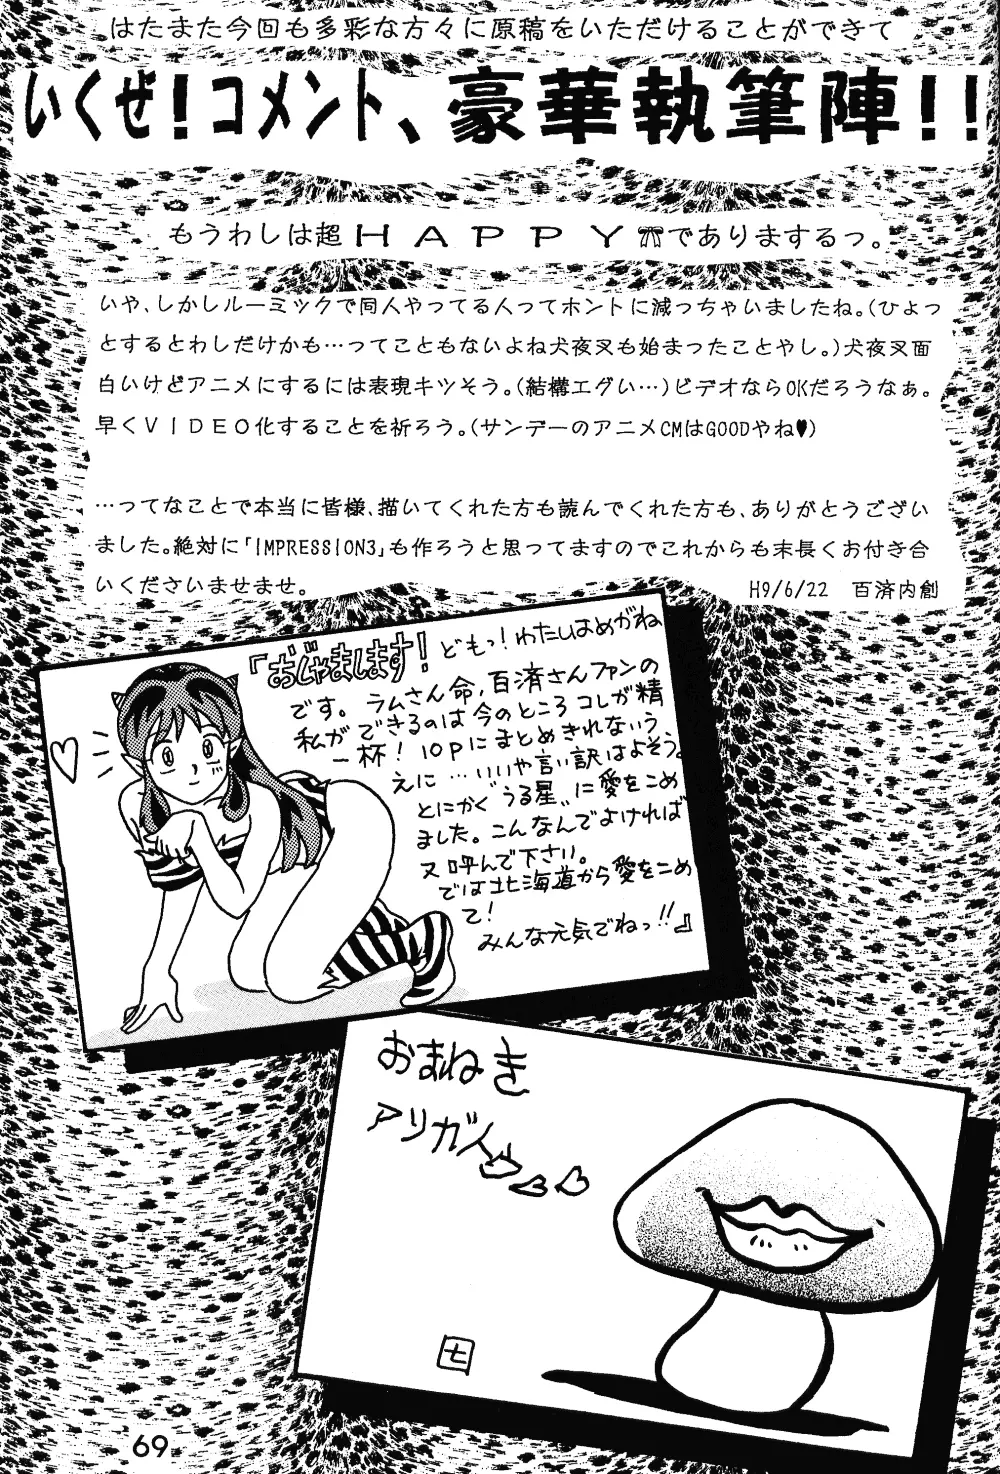 はたまた今回も多彩な方々に原稿をいただけることができて
いくぜ！コメント、豪華執筆陣！！
もうわしは超ＨＡＰＰＹでありまするっ。
いや、しかしルーミックで同人やってる人ってホントに減っちゃいましたね。（ひょっ
とするとわしだけかも…ってこともないよね犬夜叉も始まったことやし。）犬夜叉面
白いけどアニメにするには表現キツそう。（結構エグい…）ビデオならOKだろうなぁ。
早くＶＩＤＥＯ化することを祈ろう。（サンデーのアニメCMはGOODやね♥）
…ってなことで本当に皆様、描いてくれた方も読んでくれた方も、ありがとうござい
ました。絶対に「IMPRESSION3」も作ろうと思ってますのでこれからも末長くお付き合
いくださいませませ。
H9/6/22　百済内創
「おじゃまします！ どもっ！わたしはめがね
です。ラムさん命、百済さんファンの
私ができるのは今のところコレが精
一杯！10Pにまとめきれないう
えに…いいや言い訳はよそう。
とにかく“うる星”に愛をこめ
ました。こんなんでよければ
又呼んで下さい。
では北海道から愛をこめ
て！
みんな元気でねっ!!』
おまねき
アリガト
七
69